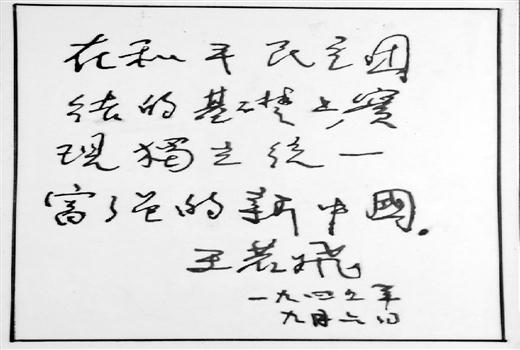 在和平民主团
结的基礎上,實
現獨立统一
富强的新中國.
王若飛
一九四五年
九月六日